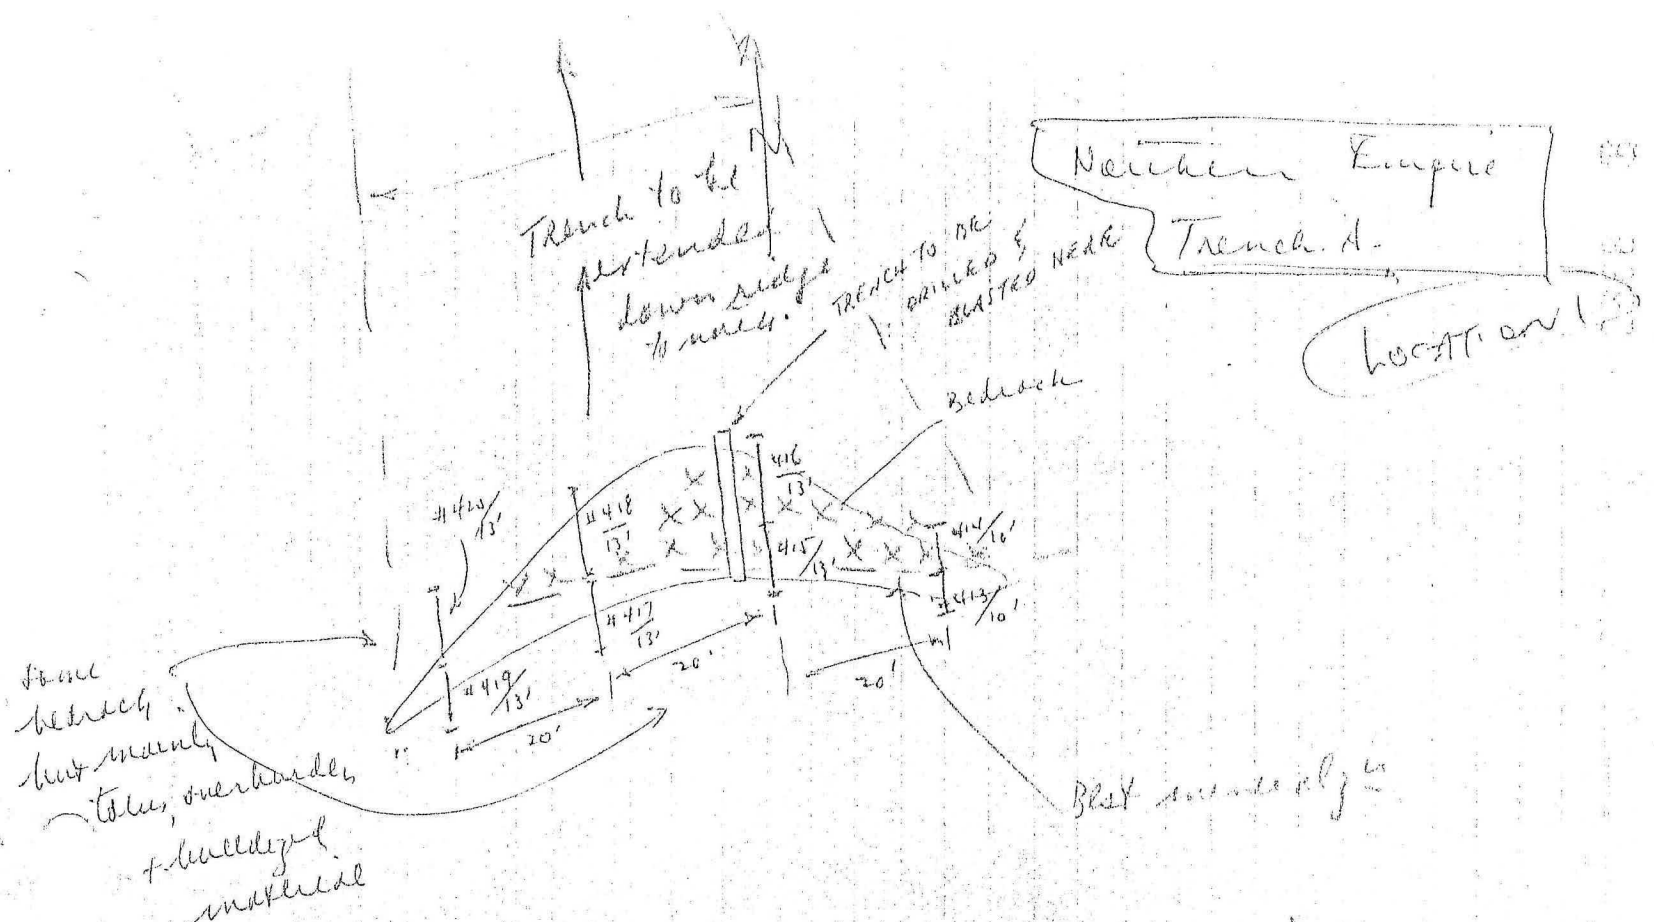 Northern Empire
Trench A.
LOCATION
N
Trench to be
extended
down ridge
to north.
TRENCH TO BE
DRILLED &
BLASTED HERE
Bedrock
#420/13'
#418/13'
416/13'
415/13'
414/10'
#413/10'
#417/13'
#419/13'
20'
20'
20'
Some
bedrock
but mainly
talus, overburden
+ bulldozed
material
Best